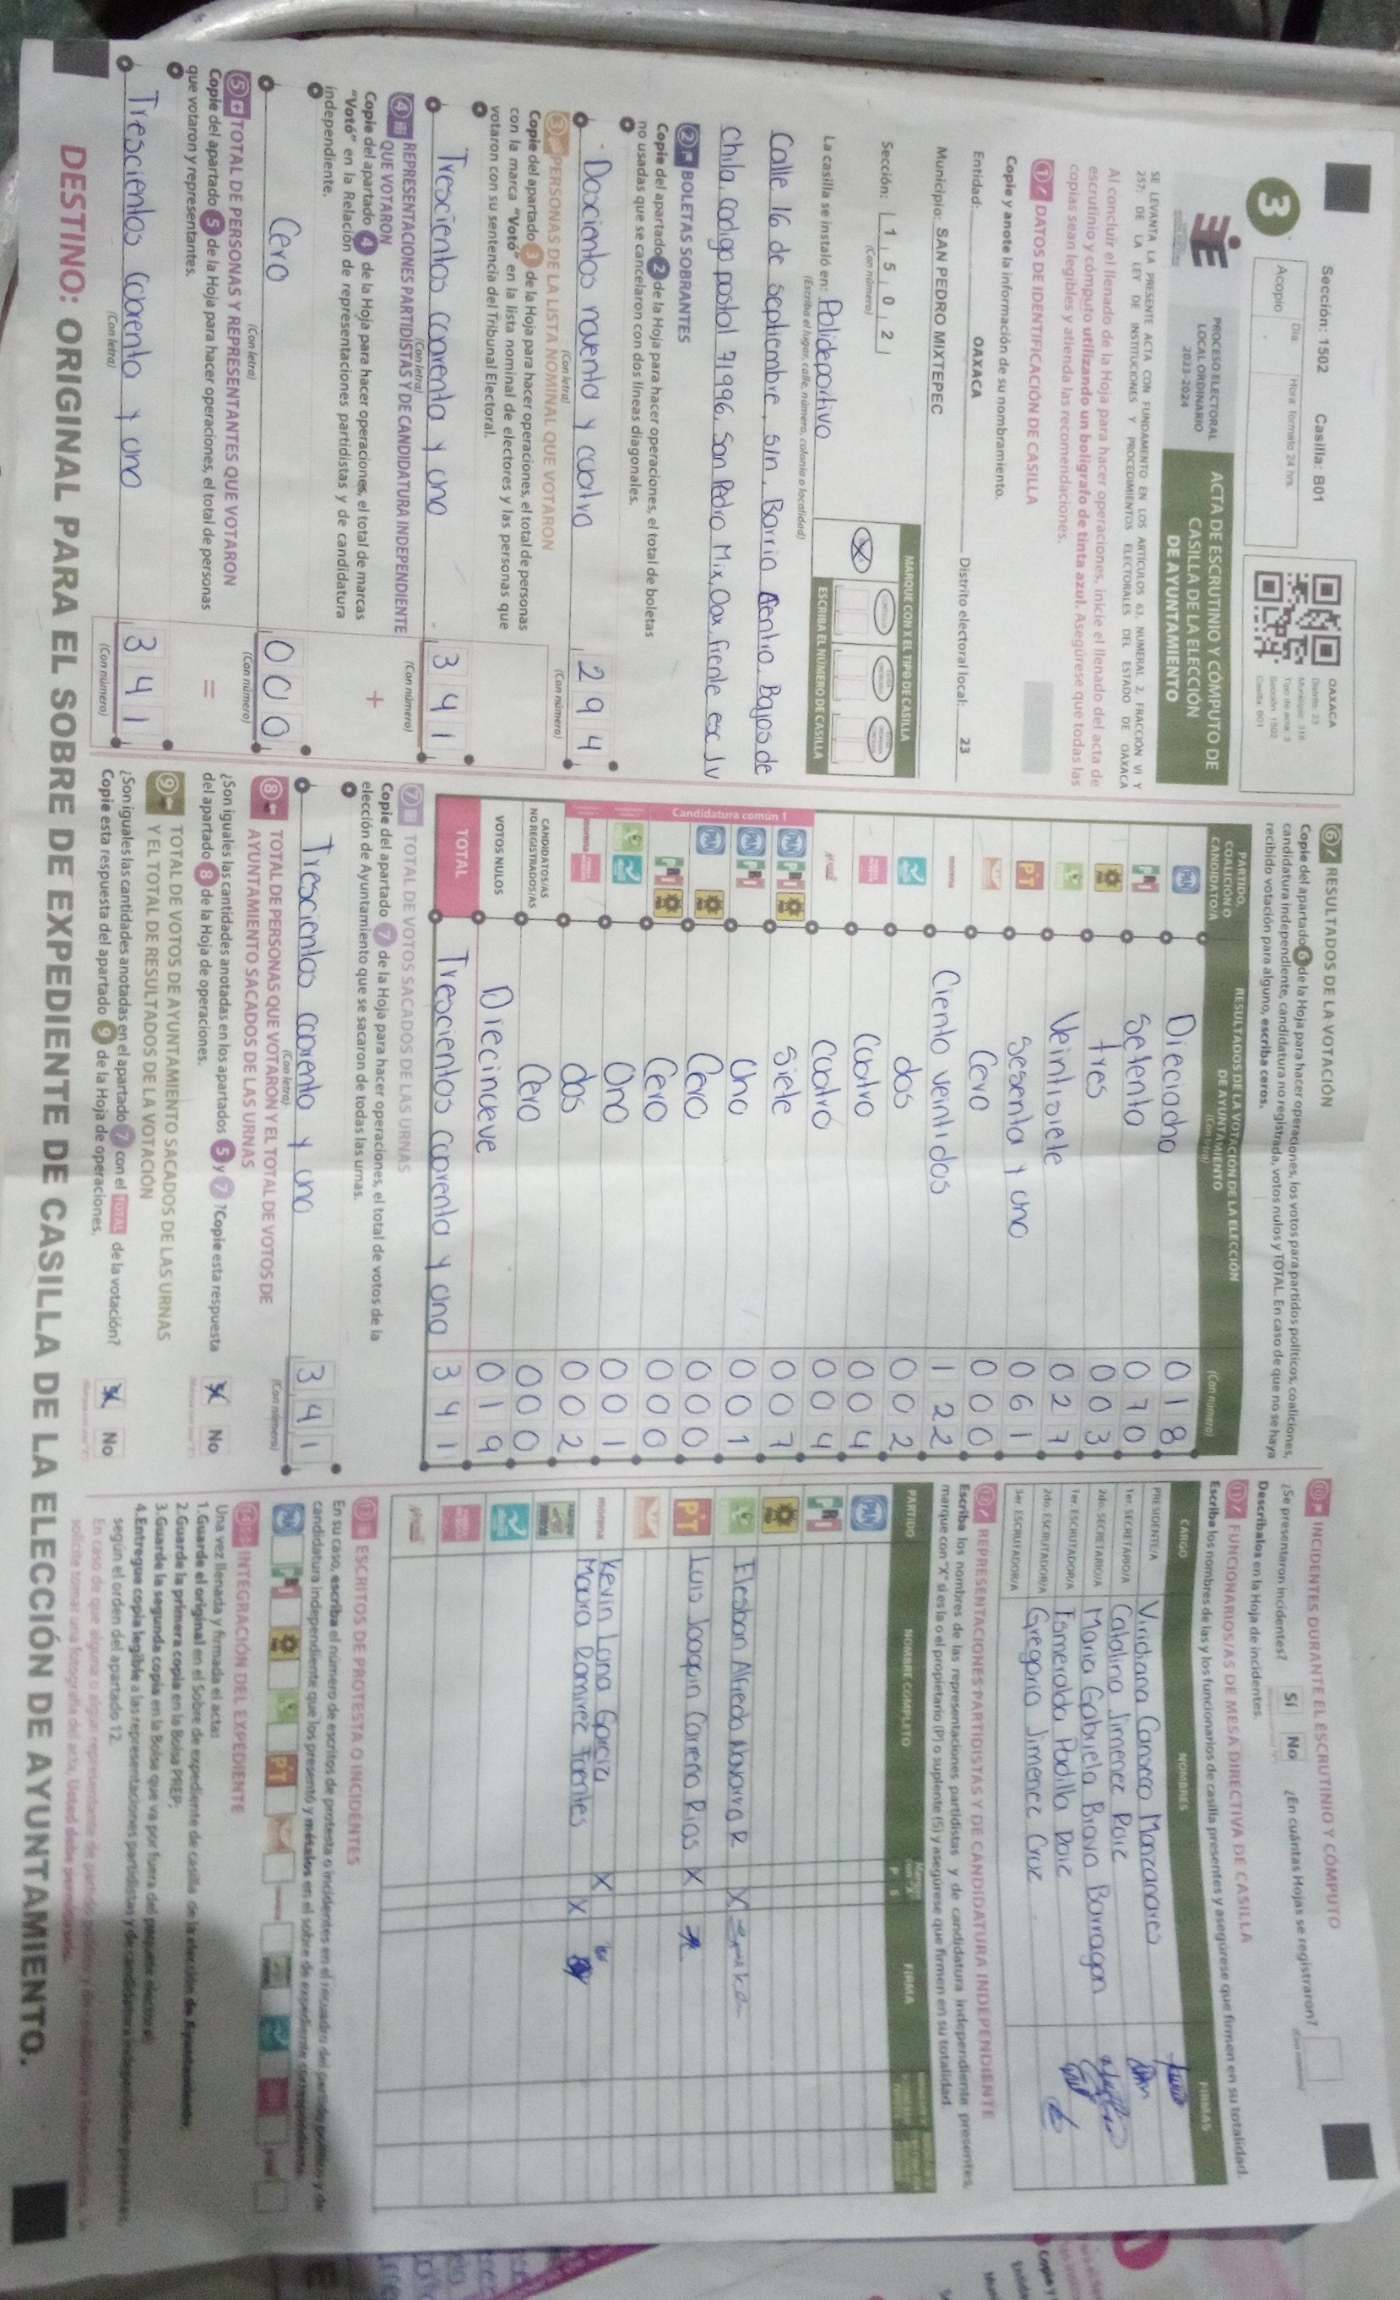 Sección: 1502 Casilla: B01
Día Hora: formato 24 hrs.
Acopio
3
OAXACA
Distrito: 23
Tipo de acta: 3
Sección: 1502
Casilla: B01
PROCESO ELECTORAL
LOCAL ORDINARIO
2023-2024
ACTA DE ESCRUTINIO Y CÓMPUTO DE
CASILLA DE LA ELECCIÓN
DE AYUNTAMIENTO
SE LEVANTA LA PRESENTE ACTA CON FUNDAMENTO EN LOS ARTÍCULOS 63, NUMERAL 2, FRACCIÓN VI Y
257; DE LA LEY DE INSTITUCIONES Y PROCEDIMIENTOS ELECTORALES DEL ESTADO DE OAXACA
Al concluir el llenado de la Hoja para hacer operaciones, inicie el llenado del acta de
escrutinio y cómputo utilizando un bolígrafo de tinta azul. Asegúrese que todas las
copias sean legibles y atienda las recomendaciones.
1 DATOS DE IDENTIFICACIÓN DE CASILLA
Copie y anote la información de su nombramiento.
Entidad: OAXACA Distrito electoral local: 23
Municipio: SAN PEDRO MIXTEPEC
Sección: 1 5 0 2
(Con número)
MARQUE CON X EL TIPO DE CASILLA
ESCRIBA EL NÚMERO DE CASILLA
La casilla se instaló en: Polideportivo
(Escriba el lugar, calle, número, colonia o localidad)
Calle 16 de septiembre, sin, Barrio centro. Bajos de
Chila, codigo postal 71996, San Pedro Mix, Oax, frente esc Jv
2 BOLETAS SOBRANTES
Copie del apartado 2 de la Hoja para hacer operaciones, el total de boletas
no usadas que se cancelaron con dos líneas diagonales.
Doscientos noventa y cuatro 294
(Con letra) (Con número)
3 PERSONAS DE LA LISTA NOMINAL QUE VOTARON
Copie del apartado 3 de la Hoja para hacer operaciones, el total de personas
con la marca "Votó" en la lista nominal de electores y las personas que
votaron con su sentencia del Tribunal Electoral.
Trescientos cuarenta y uno 341
(Con letra) (Con número)
4 REPRESENTACIONES PARTIDISTAS Y DE CANDIDATURA INDEPENDIENTE
QUE VOTARON
Copie del apartado 4 de la Hoja para hacer operaciones, el total de marcas
"Votó" en la Relación de representaciones partidistas y de candidatura
independiente.
+
Cero 000
(Con letra) (Con número)
5 TOTAL DE PERSONAS Y REPRESENTANTES QUE VOTARON
Copie del apartado 5 de la Hoja para hacer operaciones, el total de personas
que votaron y representantes.
=
Trescientos cuarenta y uno 341
(Con letra) (Con número)
6 RESULTADOS DE LA VOTACIÓN
Copie del apartado 6 de la Hoja para hacer operaciones, los votos para partidos políticos, coaliciones,
candidatura independiente, candidatura no registrada, votos nulos y TOTAL. En caso de que no se haya
recibido votación para alguno, escriba ceros.
PARTIDO,
COALICIÓN O
CANDIDATO/A
RESULTADOS DE LA VOTACIÓN DE LA ELECCIÓN
DE AYUNTAMIENTO
(Con letra) (Con número)
PAN Dieciocho 018
PRI Setenta 070
tres 003
Veintisiete 027
PT Sesenta y uno 061
Cero 000
morena Ciento veintidos 122
dos 002
Cuatro 004
Cuatro 004
Candidatura común 1
PAN PRI siete 007
PAN PRI Uno 001
PAN Cero 000
PRI Cero 000
Uno 001
dos 002
CANDIDATOS/AS
NO REGISTRADOS/AS Cero 000
VOTOS NULOS Diecinueve 019
TOTAL Trescientos cuarenta y uno 341
7 TOTAL DE VOTOS SACADOS DE LAS URNAS
Copie del apartado 7 de la Hoja para hacer operaciones, el total de votos de la
elección de Ayuntamiento que se sacaron de todas las urnas.
Trescientos cuarenta y uno 341
(Con letra) (Con número)
8 TOTAL DE PERSONAS QUE VOTARON Y EL TOTAL DE VOTOS DE
AYUNTAMIENTO SACADOS DE LAS URNAS
¿Son iguales las cantidades anotadas en los apartados 5 y 7? Copie esta respuesta
del apartado 8 de la Hoja de operaciones. Sí No
9 TOTAL DE VOTOS DE AYUNTAMIENTO SACADOS DE LAS URNAS
Y EL TOTAL DE RESULTADOS DE LA VOTACIÓN
¿Son iguales las cantidades anotadas en el apartado 7 con el TOTAL de la votación?
Copie esta respuesta del apartado 9 de la Hoja de operaciones. Sí No
10 INCIDENTES DURANTE EL ESCRUTINIO Y CÓMPUTO
¿Se presentaron incidentes? Sí No ¿En cuántas Hojas se registraron?
Descríbalos en la Hoja de incidentes.
11 FUNCIONARIOS/AS DE MESA DIRECTIVA DE CASILLA
Escriba los nombres de las y los funcionarios de casilla presentes y asegúrese que firmen en su totalidad.
CARGO NOMBRES FIRMAS
PRESIDENTE/A Viridiana Canseco Manzanares
1er. SECRETARIO/A Catalina Jimenez Ruiz
2do. SECRETARIO/A Maria Gabriela Bravo Barragan
1er. ESCRUTADOR/A Esmeralda Padilla Ruiz
2do. ESCRUTADOR/A Gregoria Jimenez Cruz
3er. ESCRUTADOR/A
12 REPRESENTACIONES PARTIDISTAS Y DE CANDIDATURA INDEPENDIENTE
Escriba los nombres de las representaciones partidistas y de candidatura independiente presentes,
marque con "X" si es la o el propietario (P) o suplente (S) y asegúrese que firmen en su totalidad.
PARTIDO NOMBRE COMPLETO P S FIRMA
PAN
PRI
Elesban Alfredo Navarra R. X
PT Luis Joaquin Carreño Rios X
morena Kevin Luna Garcia X
Maura Ramirez Fuentes X
13 ESCRITOS DE PROTESTA O INCIDENTES
En su caso, escriba el número de escritos de protesta o incidentes en el recuadro del partido político y de
candidatura independiente que los presentó y métalos en el sobre de expediente correspondiente.
14 INTEGRACIÓN DEL EXPEDIENTE
Una vez llenada y firmada el acta:
1.Guarde el original en el Sobre de expediente de casilla de la elección de Ayuntamiento;
2.Guarde la primera copia en la Bolsa PREP;
3.Guarde la segunda copia en la Bolsa que va por fuera del paquete electoral;
4.Entregue copia legible a las representaciones partidistas y de candidatura independiente presentes,
según el orden del apartado 12.
DESTINO: ORIGINAL PARA EL SOBRE DE EXPEDIENTE DE CASILLA DE LA ELECCIÓN DE AYUNTAMIENTO.